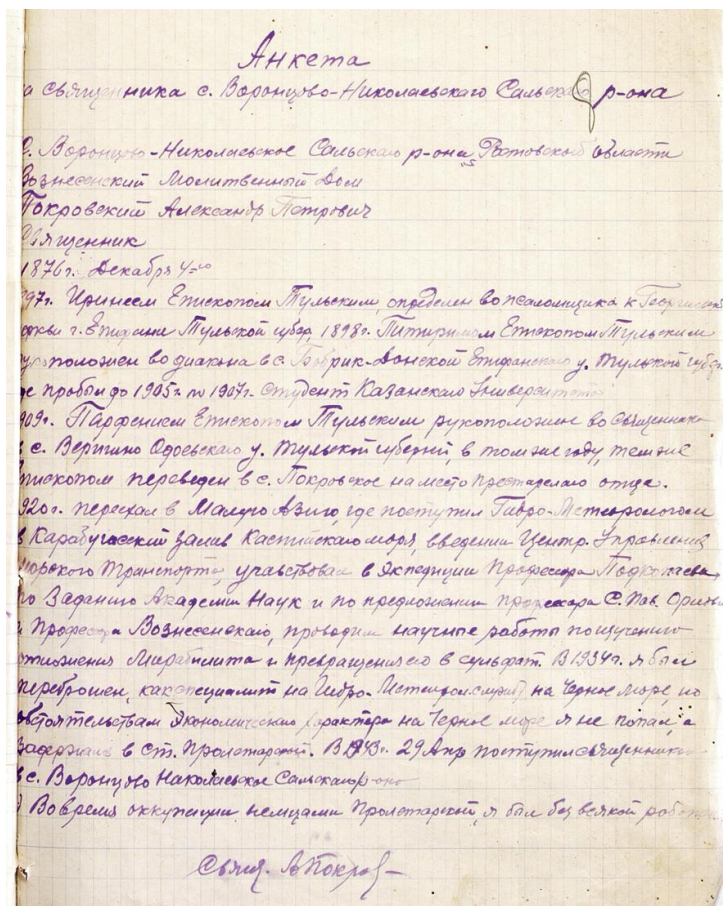 Анкета
а священника с. Воронцово-Николаевскаго Сальскаго р-она
С. Воронцово-Николаевское Сальскаго р-она Ростовской области
Вознесенский Молитвенный Дом
Покровский Александр Петрович
Священник
1876 г. Декабря 4-го
97 г. Иринеем Епископом Тульским, определен во псаломщика к Георгиевск
церкви г. Епифани Тульской губер, 1898 г. Питиримом Епископом Тульским
рукоположен во диакона в с. Бобрик-Донской Епифанскаго у. Тульской губер.
где пробыл до 1905 г. по 1907 г. студент Казанскаго Университета
909 г. Парфением Епископом Тульским рукоположен во священника
в с. Вергино Одоевскаго у. Тульской губернии, в том же году, тем же
Епископом переведен в с. Покровское на место престарелаго отца.
920 г. переехал в Малую Азию, где поступил Гидро-Метеорологом
в Карабугасский залив Каспийскаго моря, введении Центр. Управления
морского Транспорта, учавствовал в Экспедиции Профессора Подкопаева
по Заданию Академии Наук и по предложению профессора С. Пав.
и Профессора Вознесенскаго, проводил научные работы по изучению
отложения Мирабилита и превращения его в сульфат. В 1934 г. я был
переброшен, как специалист на Гидро-Метеорол. службу на Черное море, но
обстоятельствам Экономическаго характера на Черное море я не попал, а
задержался в ст. Пролетарской. В 1943 г. 29 Апр поступил священником
в с. Воронцово Николаевское Сальскаго р-она
Вовремя оккупации немцами Пролетарской, я был без всякой работы
Свящ. А Покров